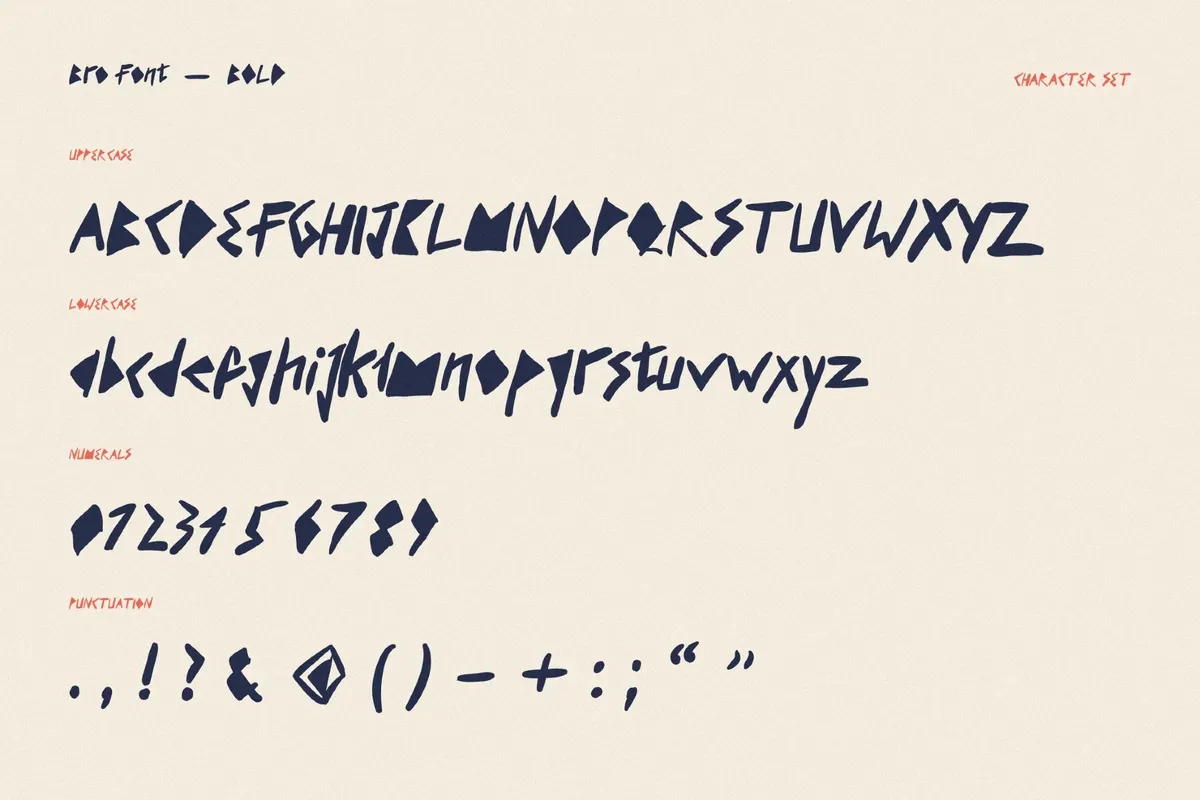 Bro Font — BOLD
CHARACTER SET
UPPERCASE
ABCDEFGHIJKLMNOPQRSTUVWXYZ
LOWERCASE
abcdefghijklmnopqrstuvwxyz
NUMERALS
0123456789
PUNCTUATION
. , ! ? & @ ( ) - + : ; “ ”